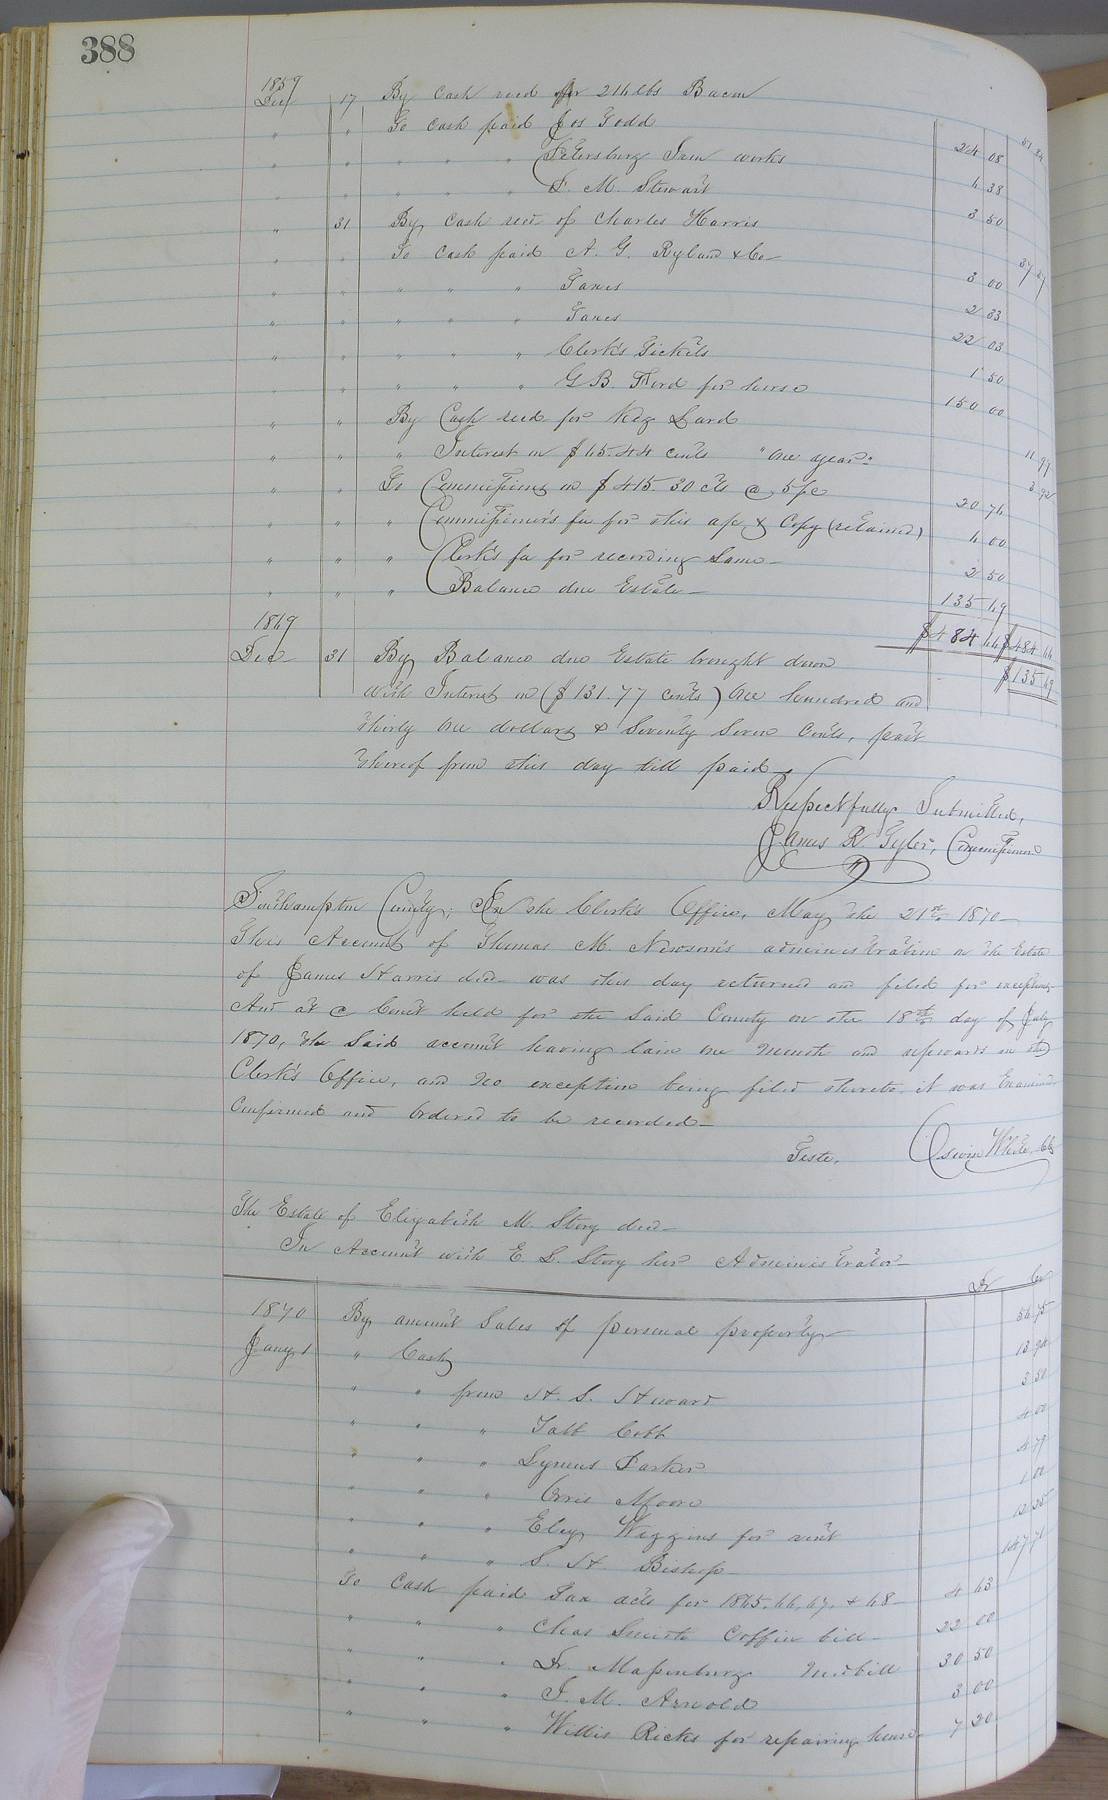 388
1859
Dec 17 By Cash recd for 216 lbs Bacon 51 84
" " To Cash paid Jos Todd 24 08
" " " " " Petersburg Iron works 6 38
" " " " " J. M. Stewart 3 50
" 31 By Cash recd of Charles Harris 37 27
" " To Cash paid A. G. Ryland & Co 3 00
" " " " " Taxes 2 33
" " " " " Taxes 22 03
" " " " " Clerk's Tickets 1 50
" " " " " G B. Ford for horse 150 00
" " By Cash recd for Keg Lard 11 99
" " " Interest on $65.44 cents "one year" 3 92
" " To Commissions on $415.30 cts @ 5 pc 20 76
" " " Commissioner's fee for this a/c & Copy (retained) 6 00
" " " Clerk's fee for recording Same 2 50
" " " Balance due Estate 135 69
$484 66 $484 66
1869
Dec 31 By Balance due Estate brought down $135 69
with Interest on ($131.77 cents) One hundred and
thirty one dollars & Seventy Seven Cents, part
thereof from this day till paid
Respectfully Submitted,
James R. Tyler, Commissioner
Southampton County; In the Clerk's Office, May the 21st 1870
This Account of Thomas M. Newsom's administration on the Estate
of James Harris decd was this day returned and filed for exceptions
And at a Court held for the Said County on the 18th day of July
1870, the Said account having lain one month and upwards in the
Clerk's Office, and no exception being filed thereto, it was Examined
Confirmed and Ordered to be recorded
Teste, Oswin White, Clk
The Estate of Elizabeth M. Story decd
In Account with E. S. Story her Administrator
Dr Cr
1870 By amount Sales of personal property 56 75
Jany 1 " Cash 13 90
" " from H. S. Steward 3 50
" " " Talt Cobb 4 00
" " " Lymus Parker 4 79
" " " Orris Moore 1 00
" " " Eley Wiggins for rent 12 25
" " " S. H. Bishop 147 71
To Cash paid Tax acts for 1865, 66, 67, & 68 4 63
" " " Chas Smith Coffin bill 22 00
" " " Dr. Massenburg Med bill 30 50
" " " J. M. Arnold 3 00
" " " Willis Ricks for repairing house 7 20